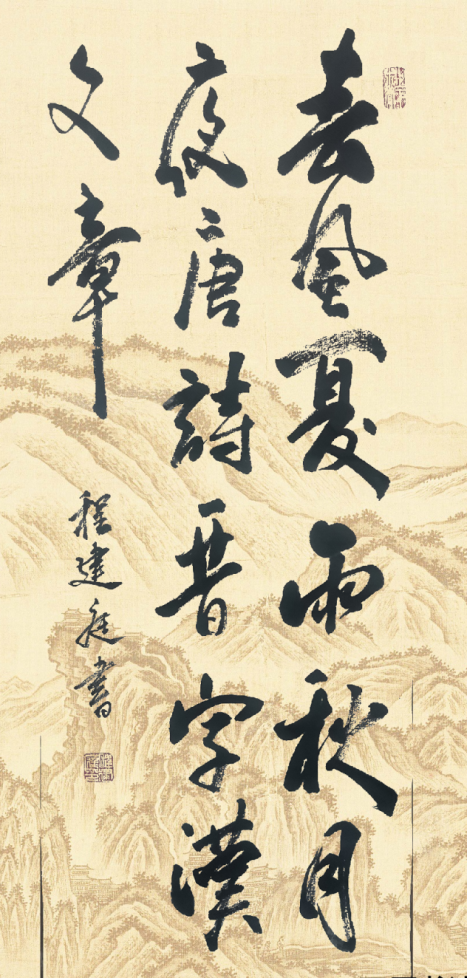 春風夏雨秋月
夜唐詩晋字漢
文章
程建庭書